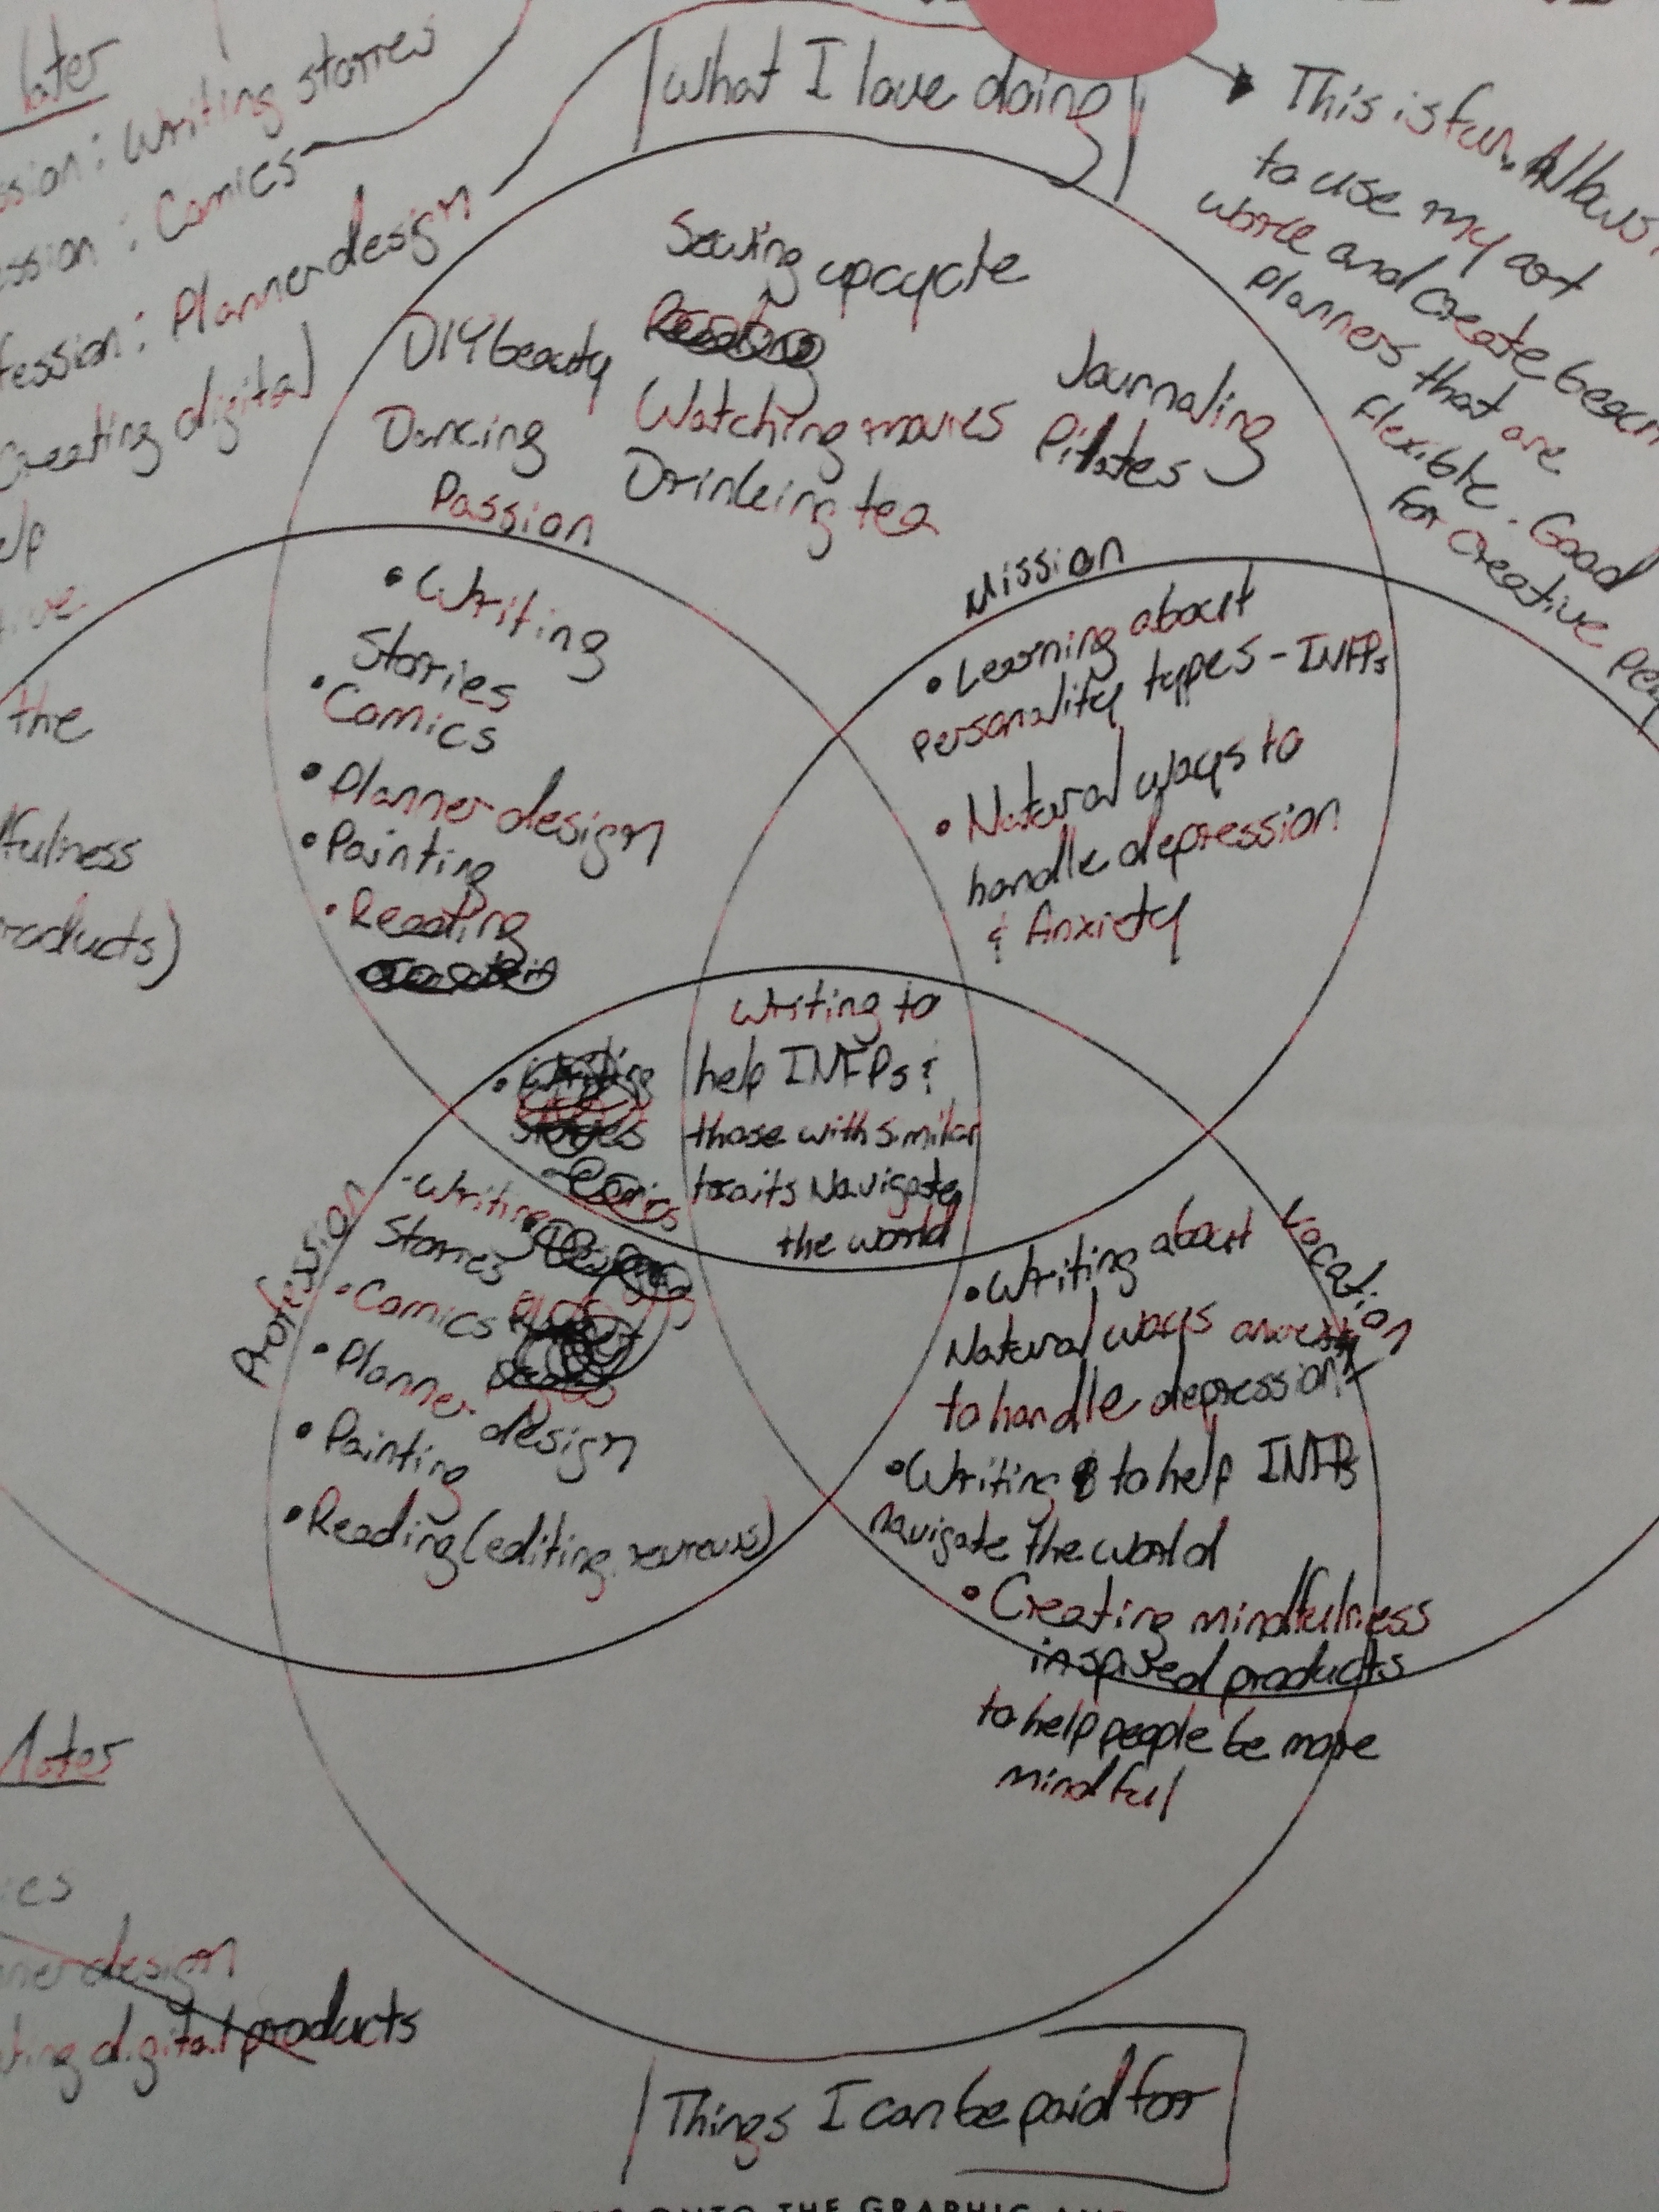 later
ssion: Writing stories
ssion: Comics
fession: Planner design
Creating digital
elp
tive
the
fulness
roducts)
What I love doing
This is fun. Allows
to use my art
work and create
planners that are
flexible. Good
for creative
Sewing upcycle
DIY beauty
Reading
Journaling
Dancing
Watching movies
Pilates
Drinking tea
Passion
• Writing
Stories
• Comics
• Planner design
• Painting
• Reading
Mission
• Learning about
personality types - INFPs
• Natural ways to
handle depression
& Anxiety
Writing to
help INFPs &
those with similar
traits Navigate
the world
• Writing
Stories
- Comics
Profession
- Writing
Stories
• Comics
• Planner design
• Painting
• Reading (editing, reviews)
Vocation
• Writing about
Natural ways anxiety
to handle depression +
• Writing to help INFPs
navigate the world
• Creating mindfulness
inspired products
to help people be more
mindful
Notes
ies
ner design
ting digital products
Things I can be paid for
ONTO THE GRAPHIC AND